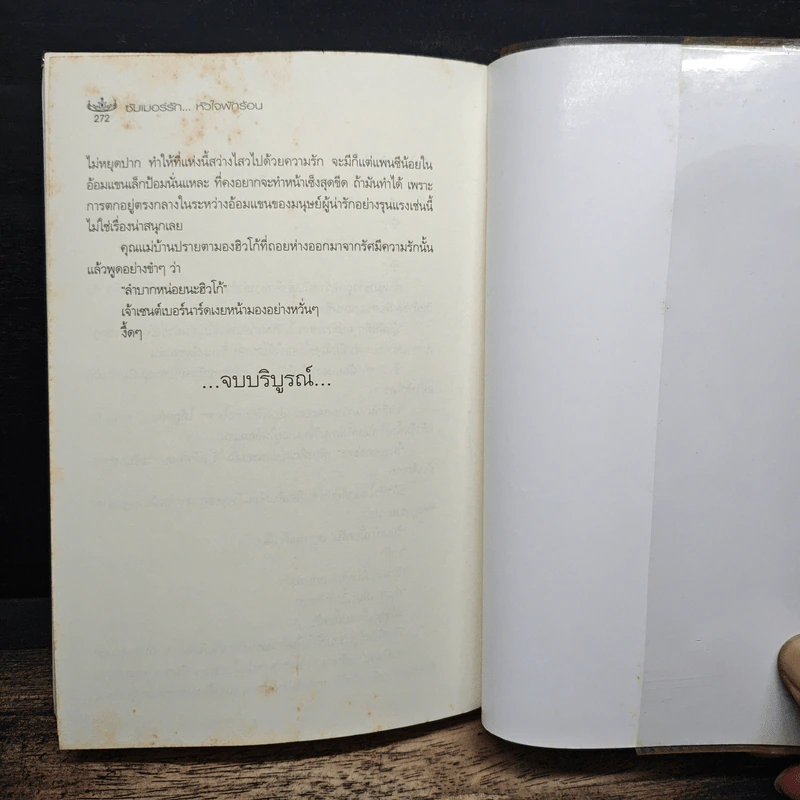 ซัมเมอร์รัก... หัวใจพักร้อน
272
ไม่หยุดปาก ทำให้ที่แห่งนี้สว่างไสวไปด้วยความรัก จะมีก็แต่แพนซีน้อยใน
อ้อมแขนเล็กป้อมนั่นแหละ ที่คงอยากจะทำหน้าเซ็งสุดขีด ถ้ามันทำได้ เพราะ
การตกอยู่ตรงกลางในระหว่างอ้อมแขนของมนุษย์ผู้น่ารักอย่างรุนแรงเช่นนี้
ไม่ใช่เรื่องน่าสนุกเลย
คุณแม่บ้านปรายตามองฮิวโก้ที่ถอยห่างออกมาจากรัศมีความรักนั้น
แล้วพูดอย่างขำๆ ว่า
"ลำบากหน่อยนะฮิวโก้"
เจ้าเซนต์เบอร์นาร์ดเงยหน้ามองอย่างหวั่นๆ
งี้ดๆ
...จบบริบูรณ์...